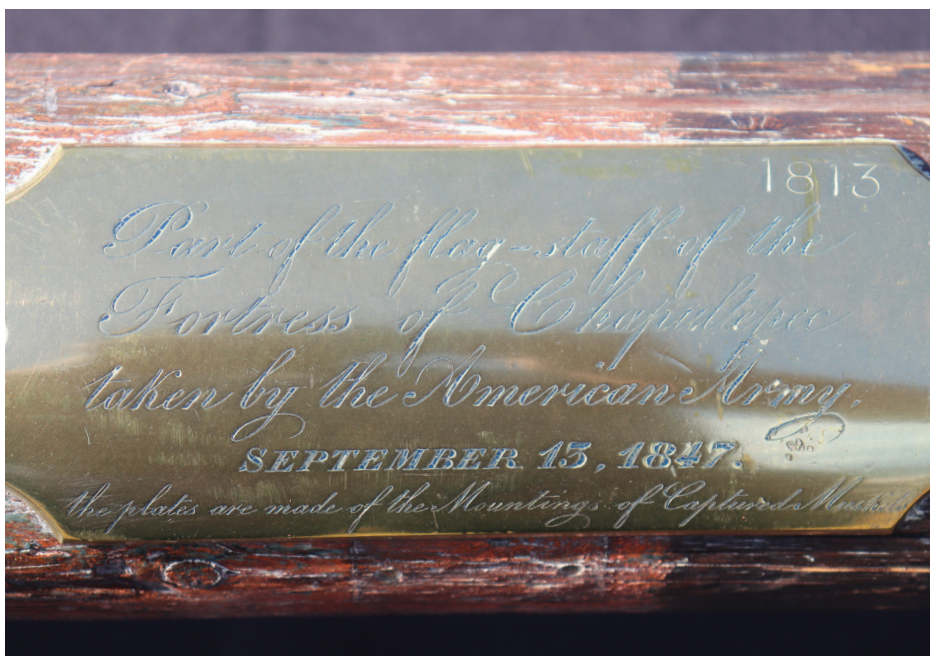 1813
Part of the flag-staff of the
Fortress of Chapultepec
taken by the American Army.
SEPTEMBER 13, 1847.
the plates are made of the Mountings of Captured Muskets